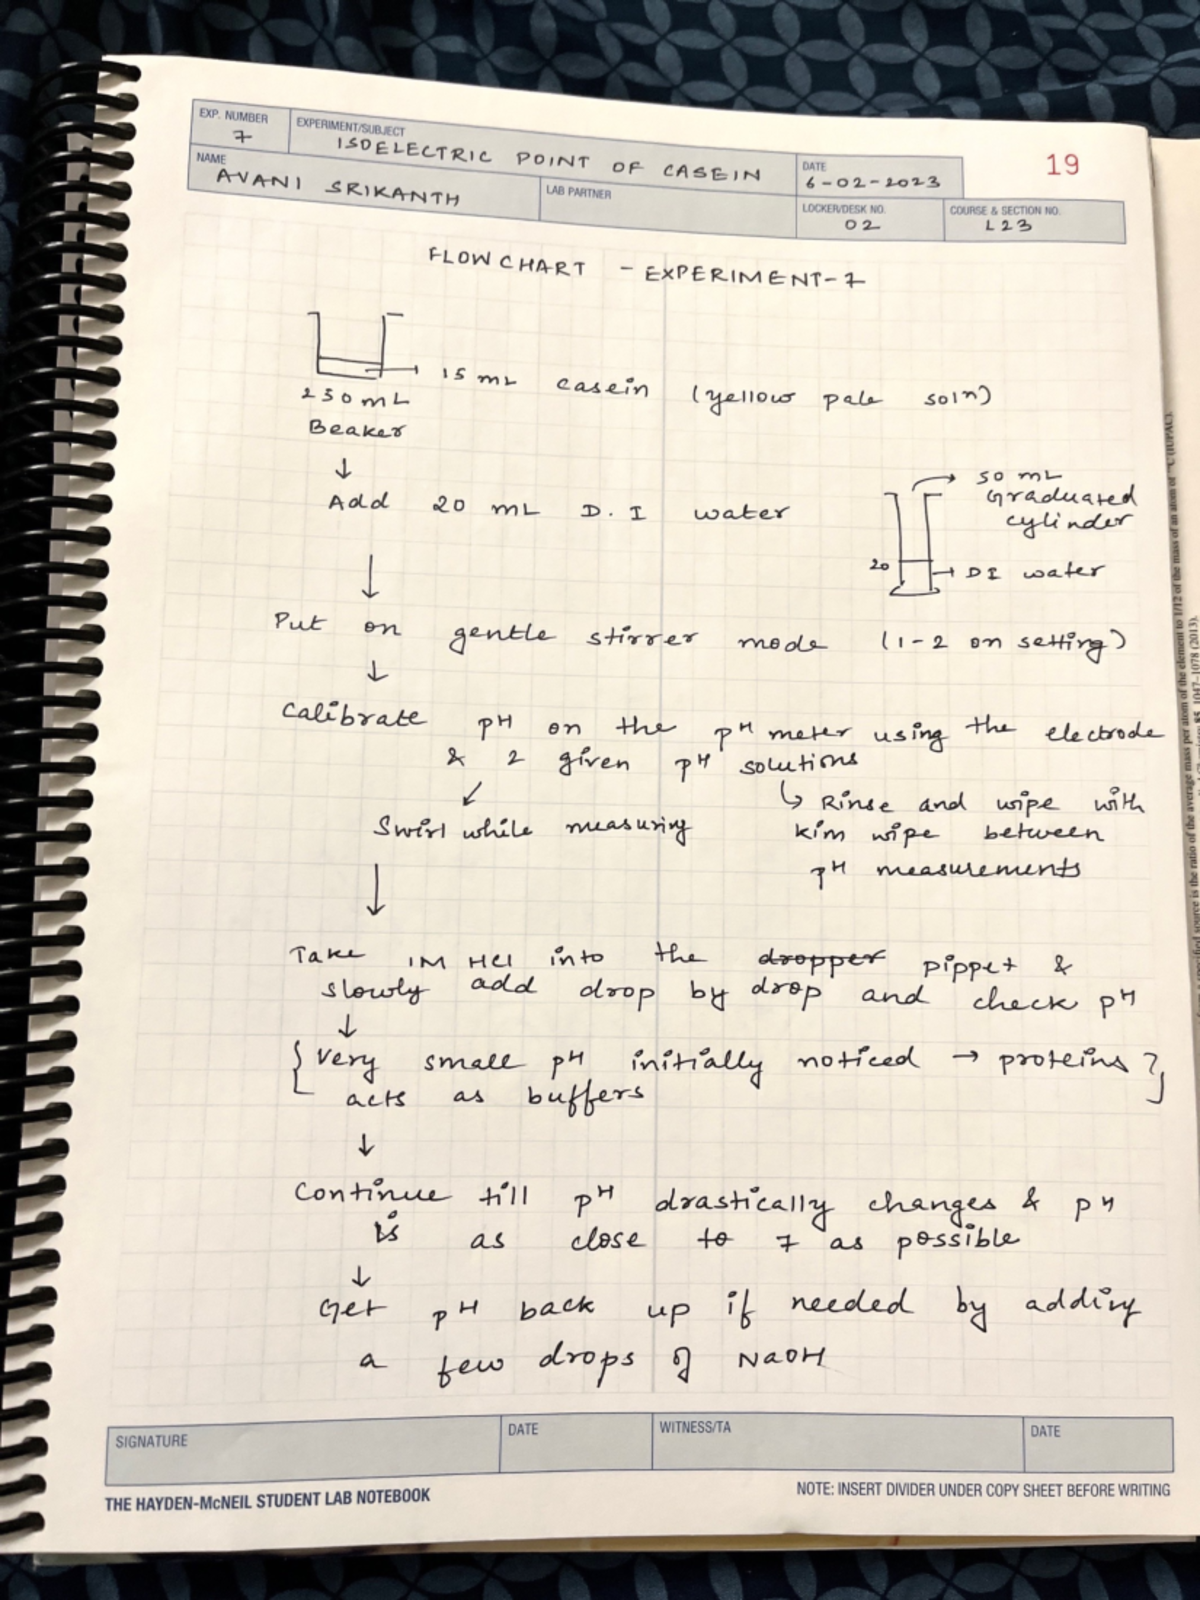 EXP. NUMBER
7
EXPERIMENT/SUBJECT
ISOELECTRIC POINT OF CASEIN
DATE
6-02-2023
19
NAME
AVANI SRIKANTH
LAB PARTNER
LOCKER/DESK NO.
02
COURSE & SECTION NO.
L23
FLOWCHART - EXPERIMENT-7
15 mL casein (yellow pale soln)
250 mL
Beaker
↓
Add 20 mL D.I water
50 mL
Graduated
cylinder
20
DI water
↓
Put on gentle stirrer mode (1-2 on setting)
↓
Calibrate pH on the pH meter using the electrode
& 2 given pH solutions
Swirl while measuring
↳ Rinse and wipe with
kim wipe between
pH measurements
↓
Take 1M HCl into the dropper pippet &
slowly add drop by drop and check pH
↓
{ Very small pH initially noticed → proteins }
acts as buffers
↓
Continue till pH drastically changes & pH
is as close to 7 as possible
↓
Get pH back up if needed by adding
a few drops of NaOH
SIGNATURE
DATE
WITNESS/TA
DATE
THE HAYDEN-McNEIL STUDENT LAB NOTEBOOK
NOTE: INSERT DIVIDER UNDER COPY SHEET BEFORE WRITING